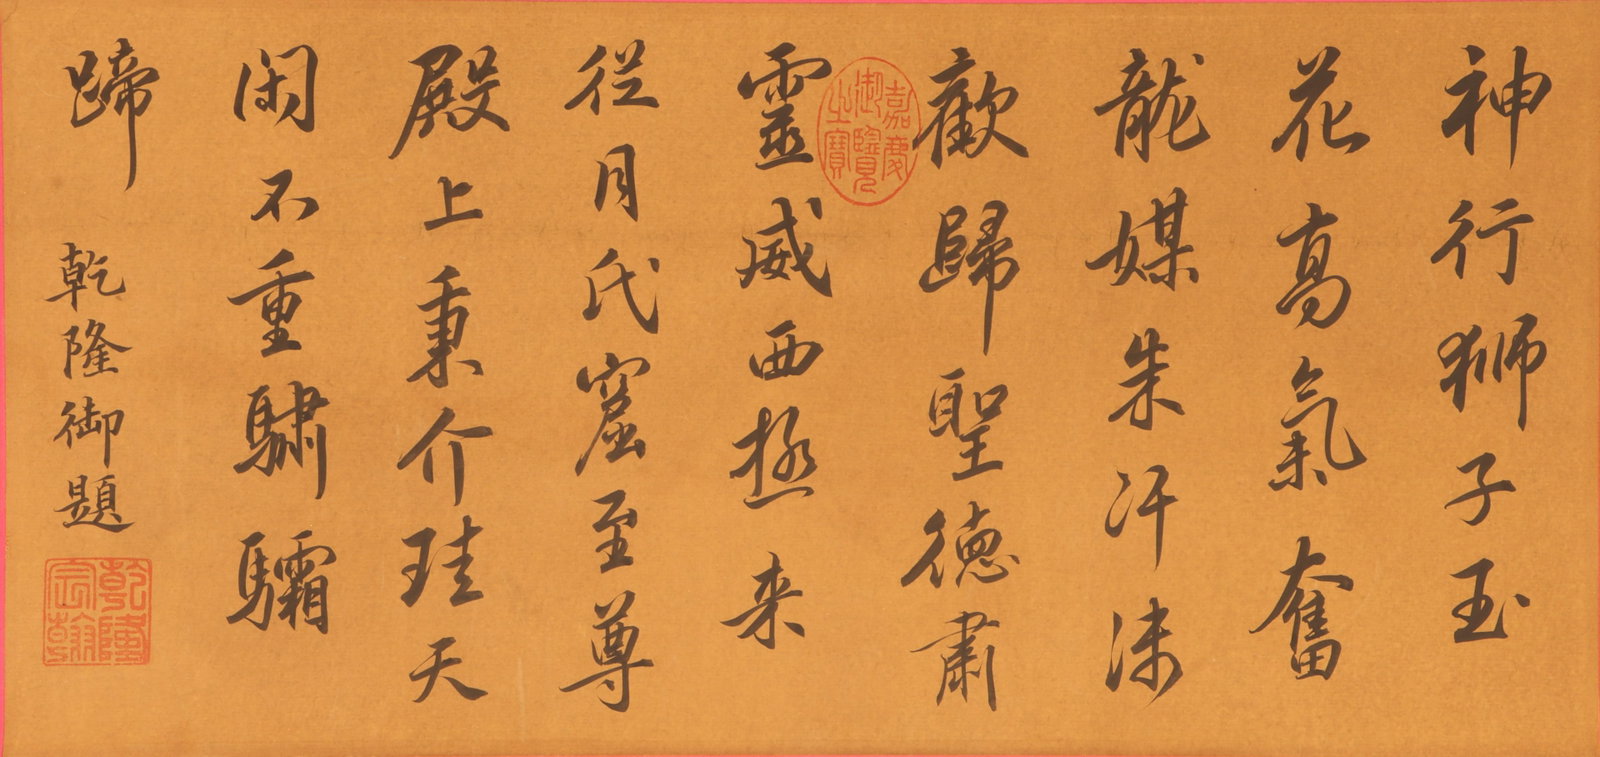 神行狮子玉
花髙氣奮
龍媒朱汗沫
歡歸聖德肅
靈威西極来
從月氏窟至尊
殿上秉介珪天
閑不重驌驦
蹄
乾隆御題
嘉慶
御覽
之寶
乾隆
宸翰